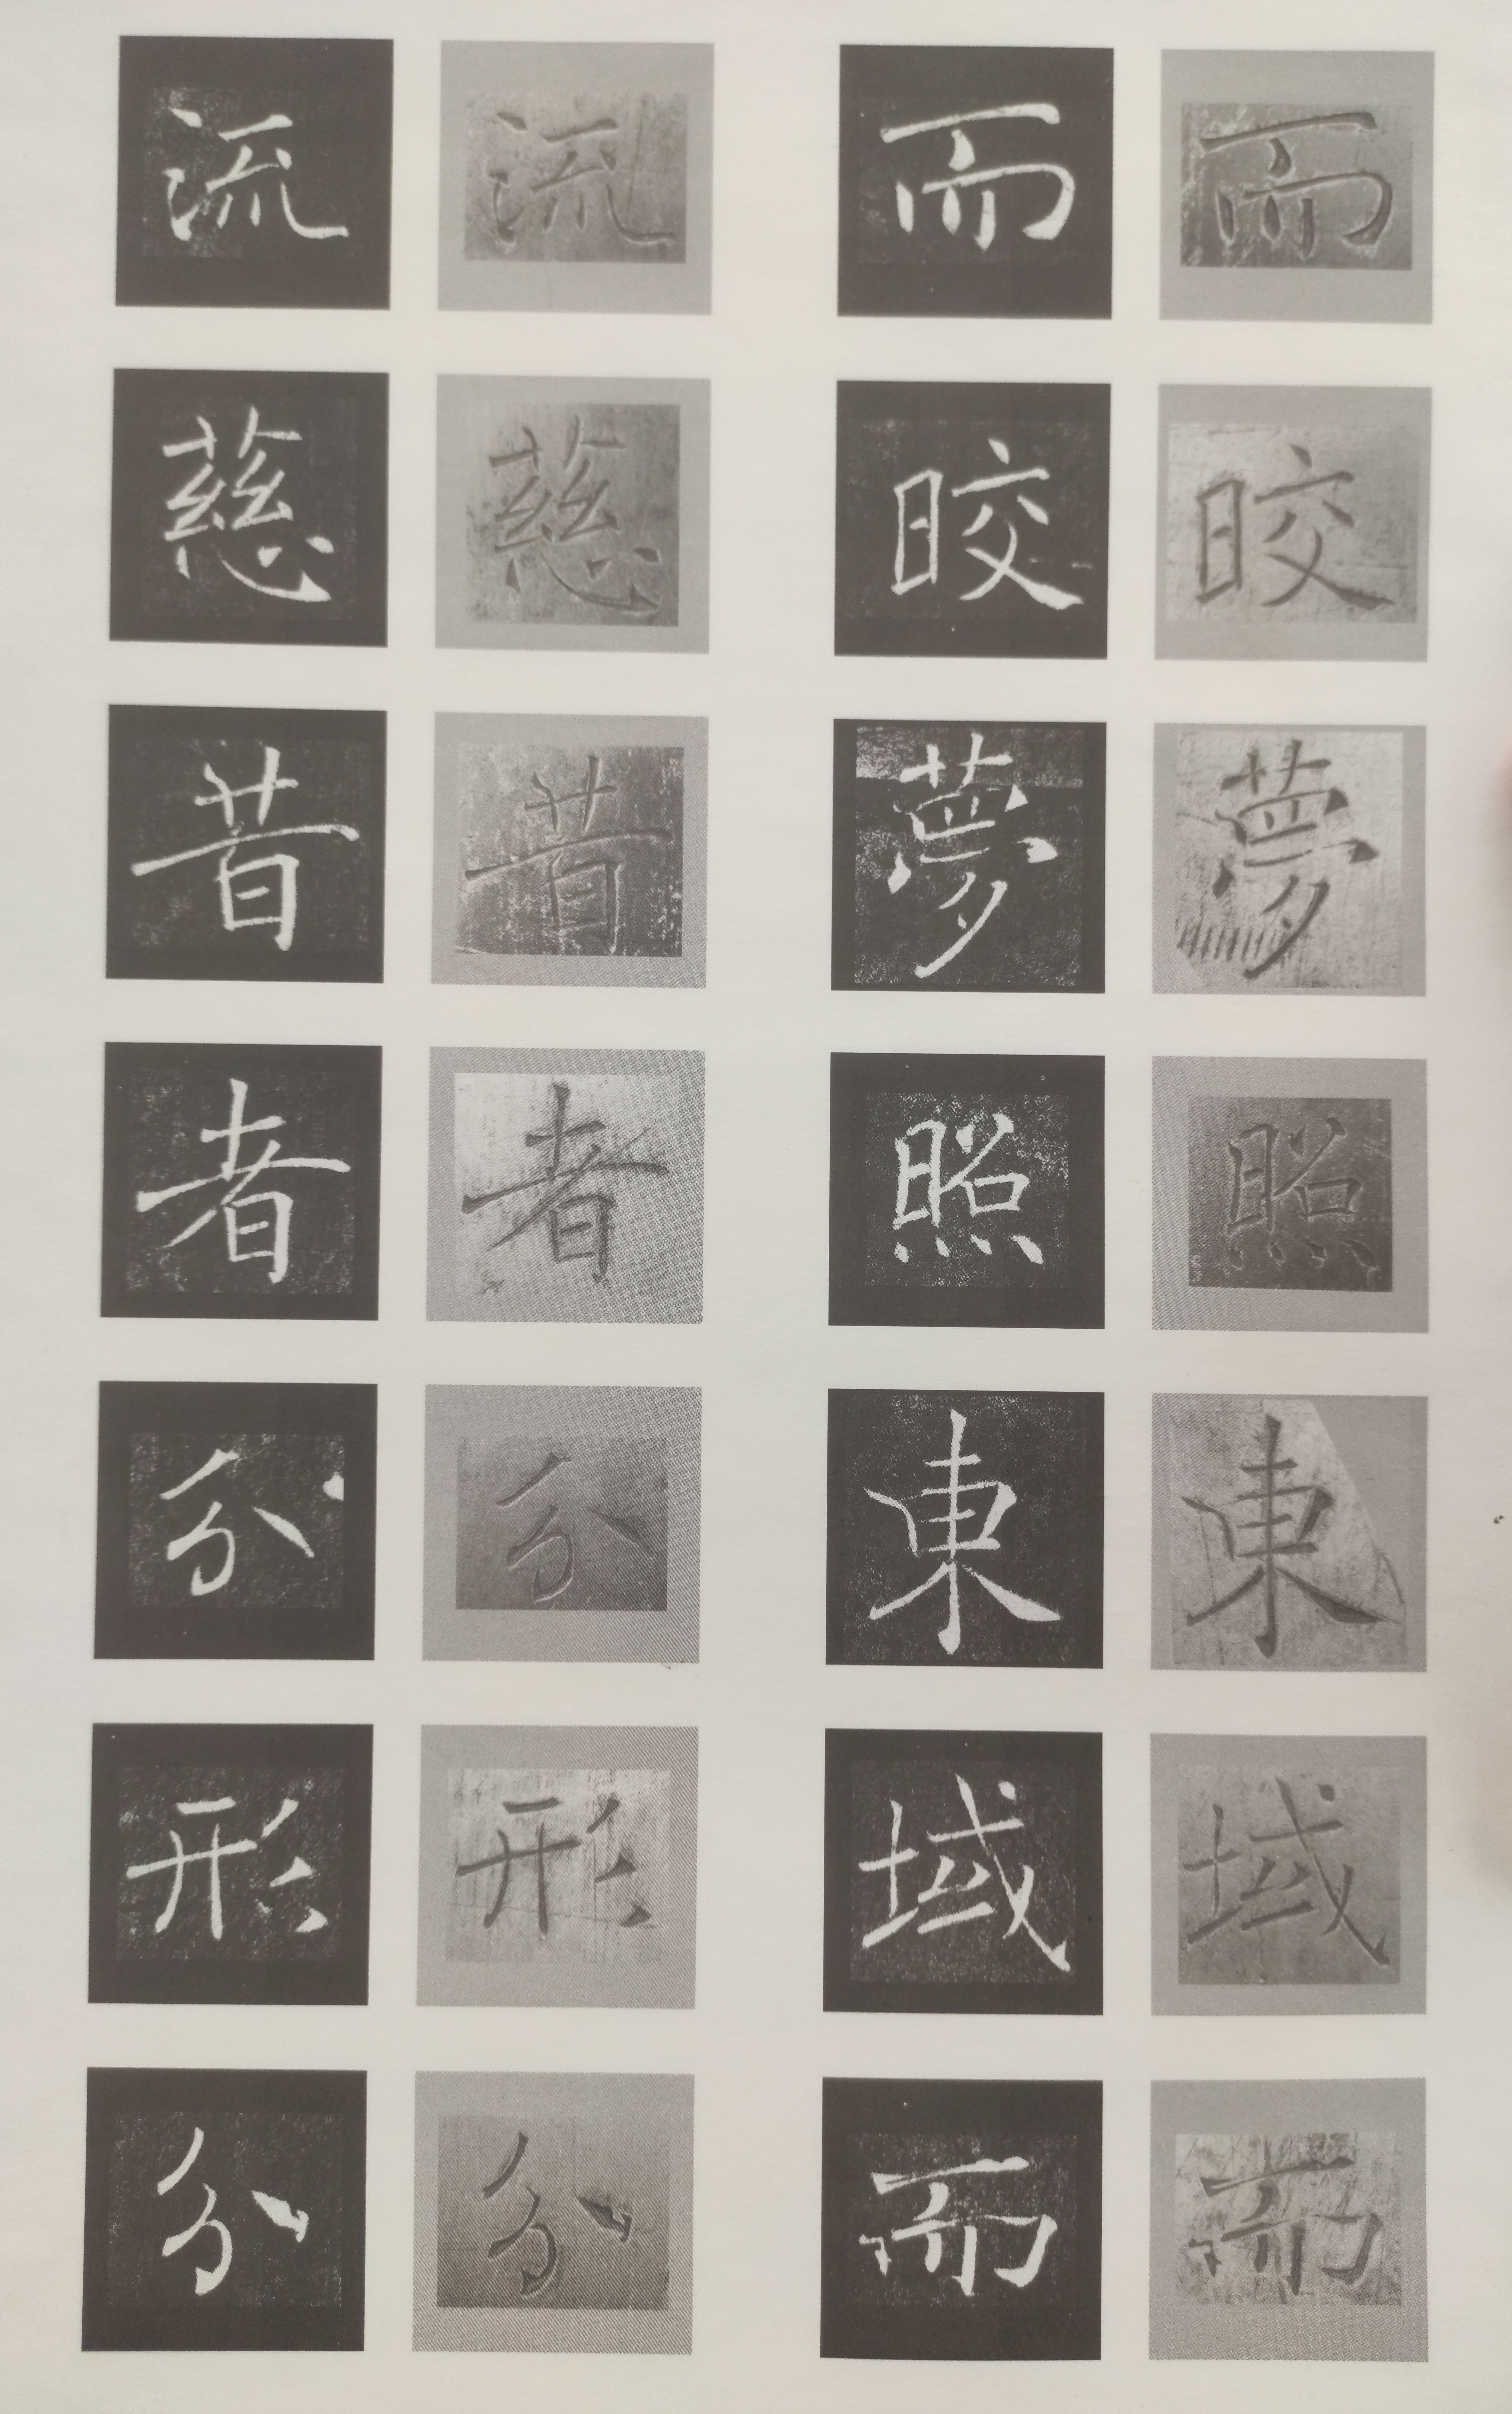 而皎夢照東域而
而皎夢照東域而
流慈昔者分形分
流慈昔者分形分